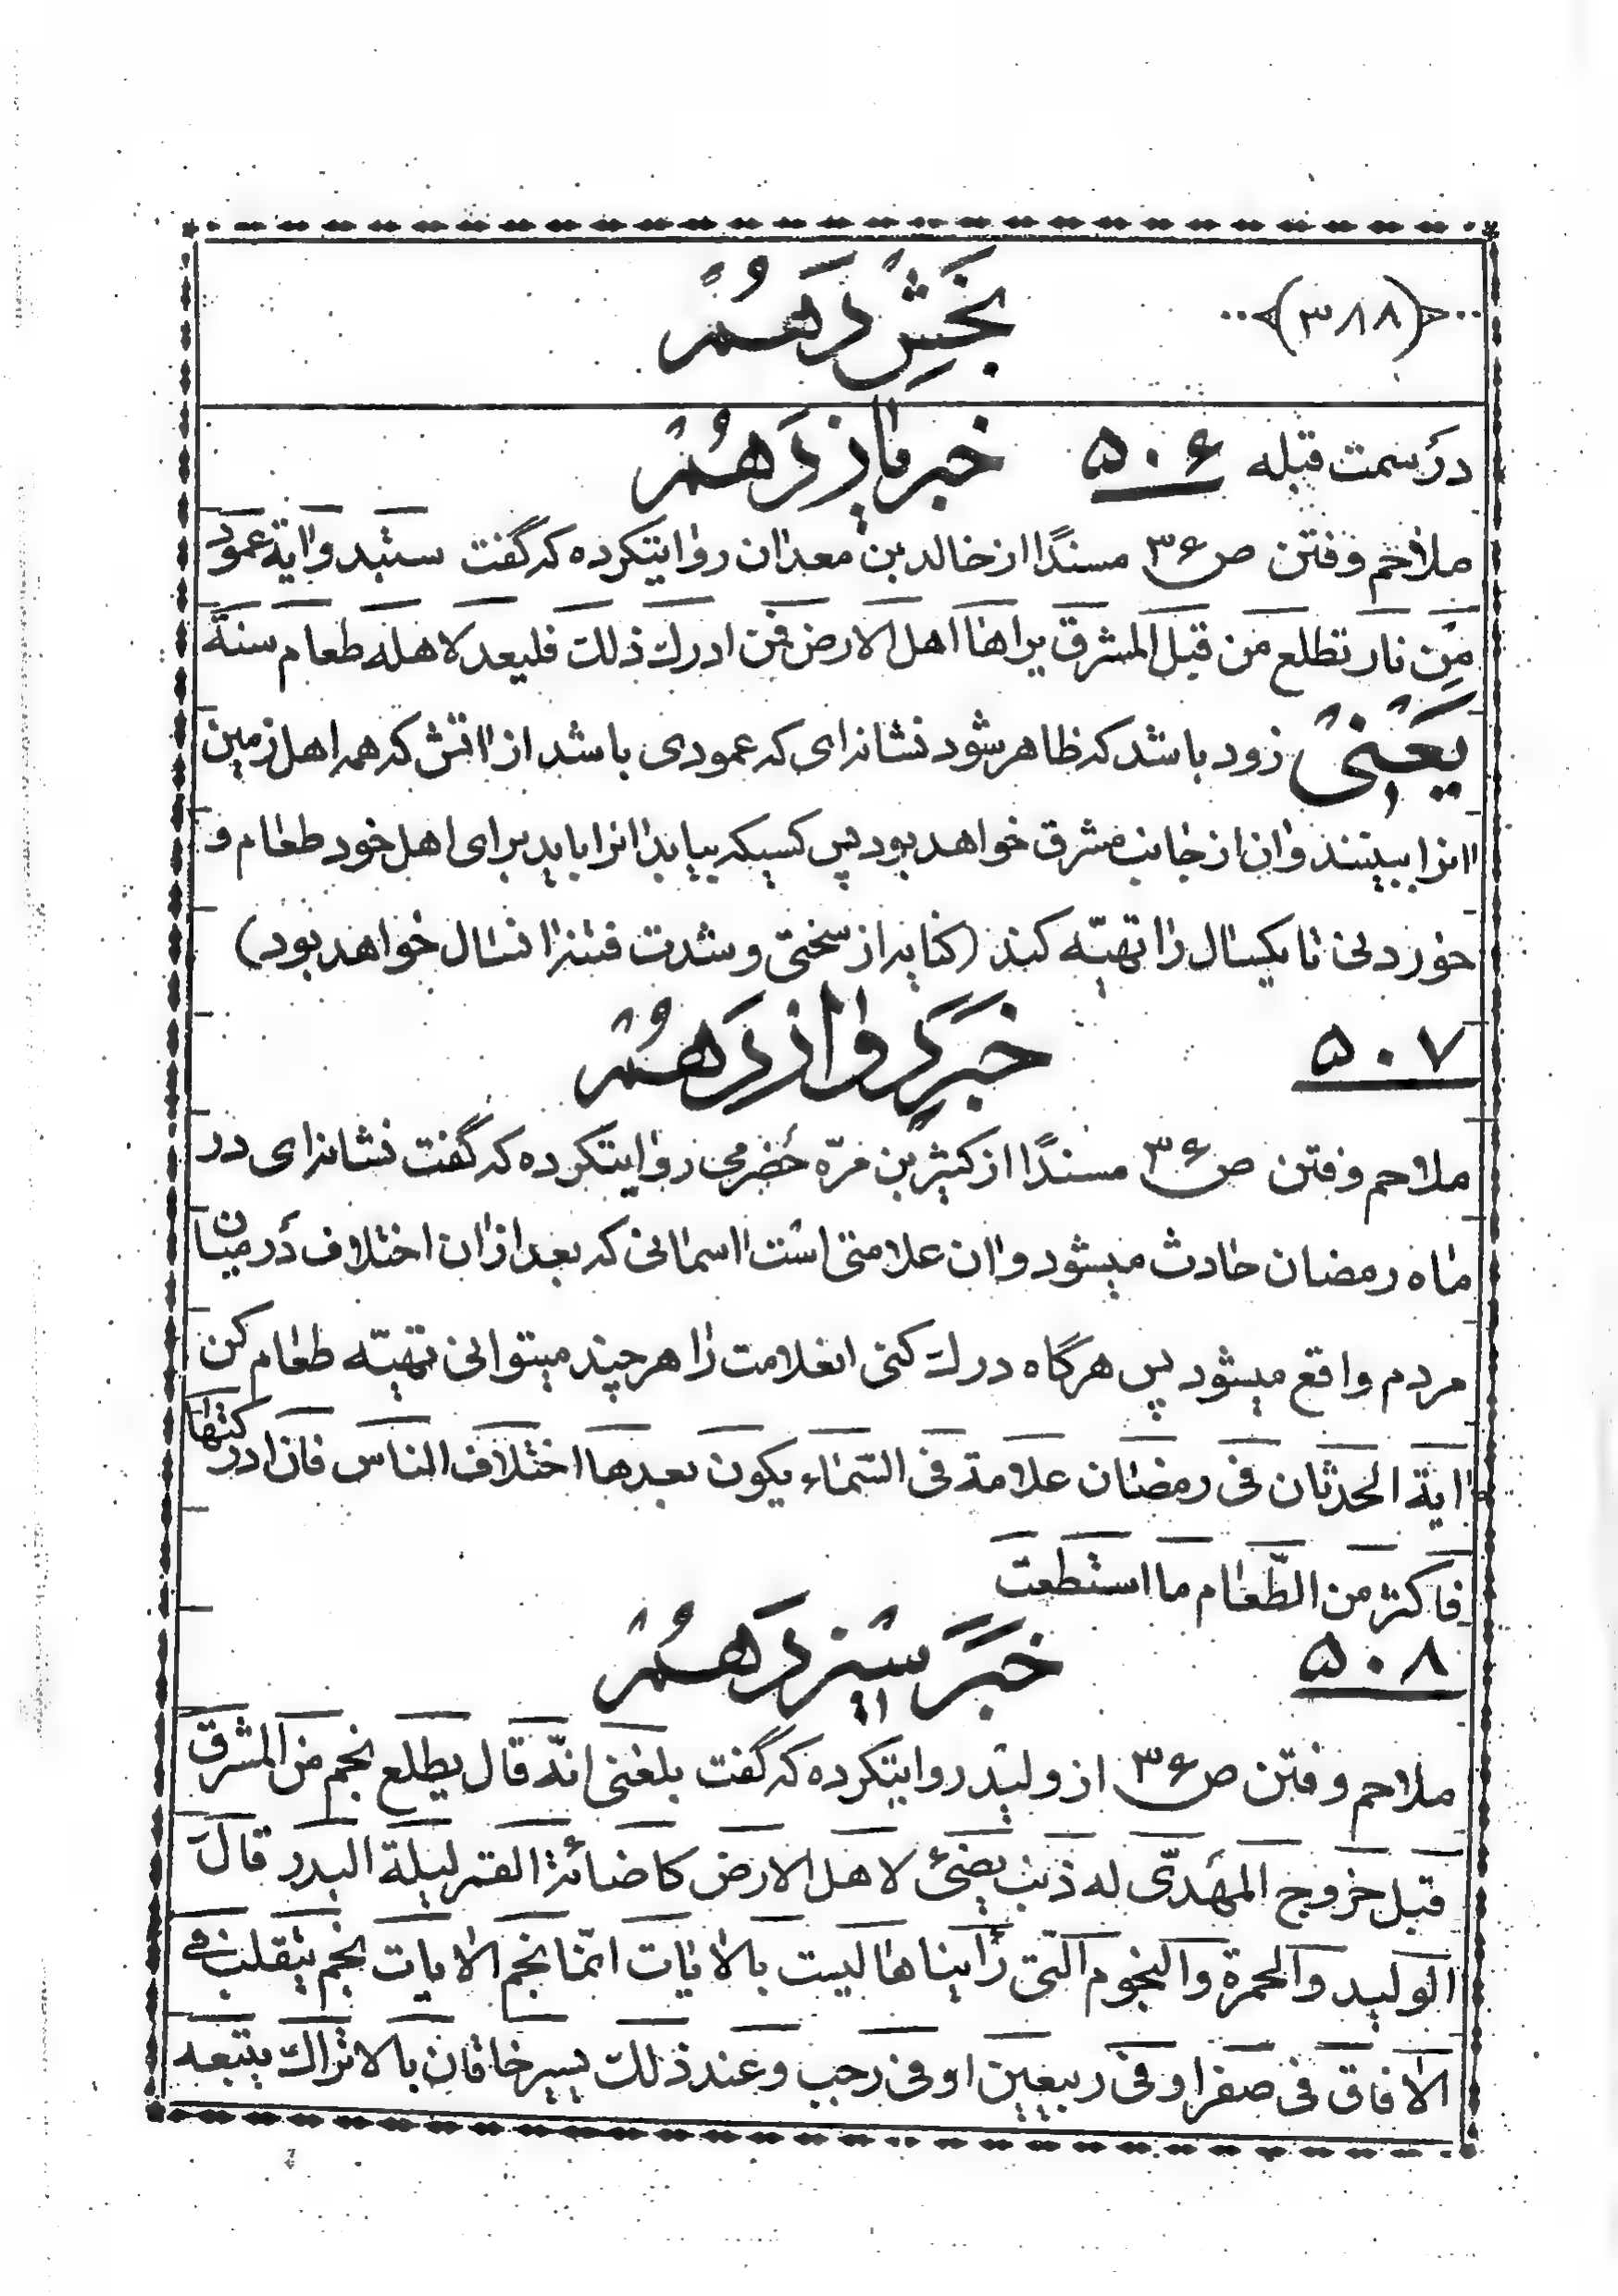 (۳۸۸)
بخش دهم
در سمت قبله ۵۰۶ خبر یازدهم
ملاحم و فتن ص۳۶ مسندًا از خالد بن معدان روایتکرده که گفت ستبدو اٰیة عمود
من نار تطلع من قبل المشرق یراها اهل الارض فمن ادرك ذلك فلیعد لاهله طعام سنة
یعنی زود باشد که ظاهر شود نشانه‌ای که عمودی باشد از اٰتش که همه اهل زمین
اٰنرا ببینند و اٰن از جانب مشرق خواهد بود پس کسیکه بیابد اٰنرا باید برای اهل خود طعام و
خوردنی تا یکسال را تهیّه کند (کنایه از سختی و شدت فتنه اٰنسال خواهد بود)
۵۰۷ خبر دوازدهم
ملاحم و فتن ص۳۶ مسندًا از کثیر بن مرّه حضرمی روایتکرده که گفت نشانه‌ای در
ماه رمضان حادث میشود و اٰن علامتی است اٰسمانی که بعد از اٰن اختلاف در میان
مردم واقع میشود پس هرگاه درك کنی انعلامت را هر چند میتوانی تهیّه طعام کن
اٰیة الحدثان فی رمضان علامة فی السّماء یکون بعدها اختلاف الناس فان ادرکتها
فاکثر من الطّعام ما استطعت
۵۰۸ خبر سیزدهم
ملاحم و فتن ص۳۶ از ولید روایتکرده که گفت بلغنی انّه قال یطلع نجم من المشرق
قبل خروج المهدّی له ذنب یضیئ لاهل الارض کاضائة القمر لیلة البدر قال
الولید والحمرة والنجوم الّتی رأیناها لیست بالاٰیات انّما نجم الاٰیات نجم ینقلب فی
الاٰفاق فی صفر او فی ربیعین او فی رجب و عند ذلك یسیر خاقان بالاتراك یتبعه